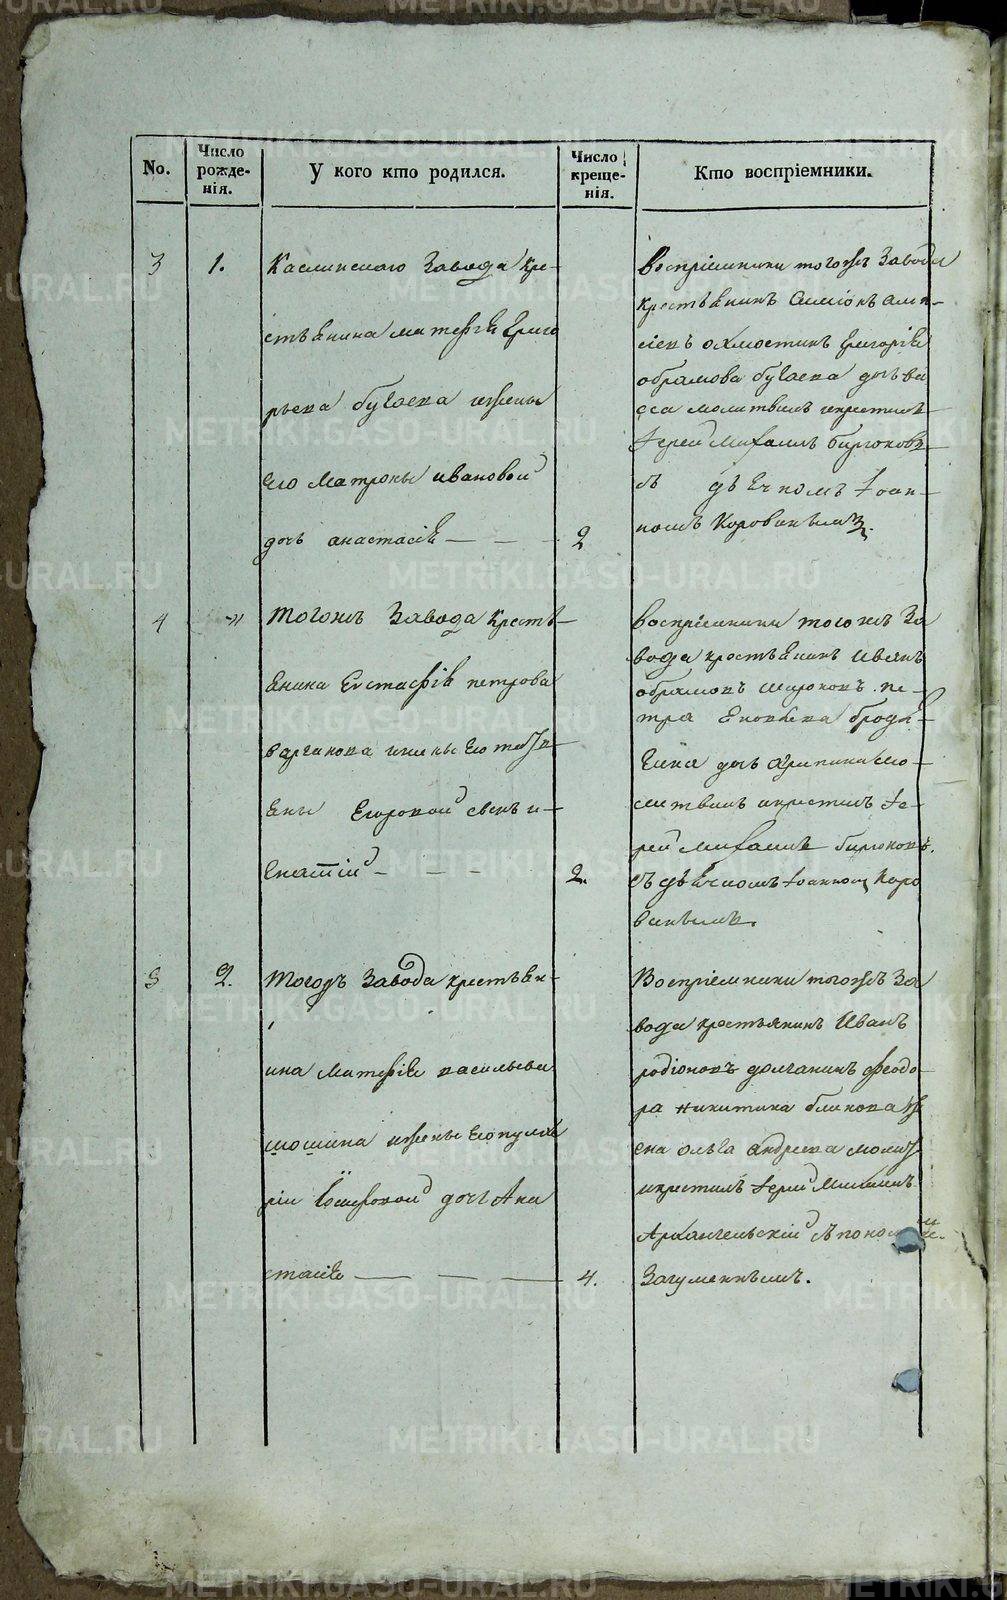 No.
Число рожде-
нія.
У кого кто родился.
Число креще-
нія.
Кто воспріемники.
3
1.
Каслинскаго Завода кре-
стьянина матфѣя григо
рьева бугаева ижены
его матроны ивановой
дочь анастасія
2
воспріемники тогожъ Завода
крестьянинъ Симіонъ
григорія
обрамова бугаева дочь ва
са молитвилъ икрестилъ
Іерей Михаилъ бирюковъ
съ дьячкомъ Іоан-
номъ Коровинымъ.
4
"
тогожъ Завода крестья-
янина Евстафія петрова
варганова ижены его татья
яны Егоровой сынъ и-
гнатій
2.
воспріемники тогожъ За
вода крестьянинъ Иванъ
обрамовъ широковъ пе-
тра броди-
гина дочь мо-
литвилъ икрестилъ Іе-
рей Михаилъ бирюковъ.
съ дьячкомъ Іоанномъ Коро
винымъ.
5
2.
тогожъ Завода крестьян-
ина матфѣя васильева
шошина ижены его пулхе
ріи Іосифовой дочь Ана
стасія
4.
Воспріемники тогожъ За
вода крестьянинъ Иванъ
родіоновъ долганинъ феодо-
ра никитина блинова ж
ена ольга андреева молит
икрестилъ Іерей Михаилъ
Архангельскій съ поном
Загуменнымъ.
METRIKI.GASO-URAL.RU